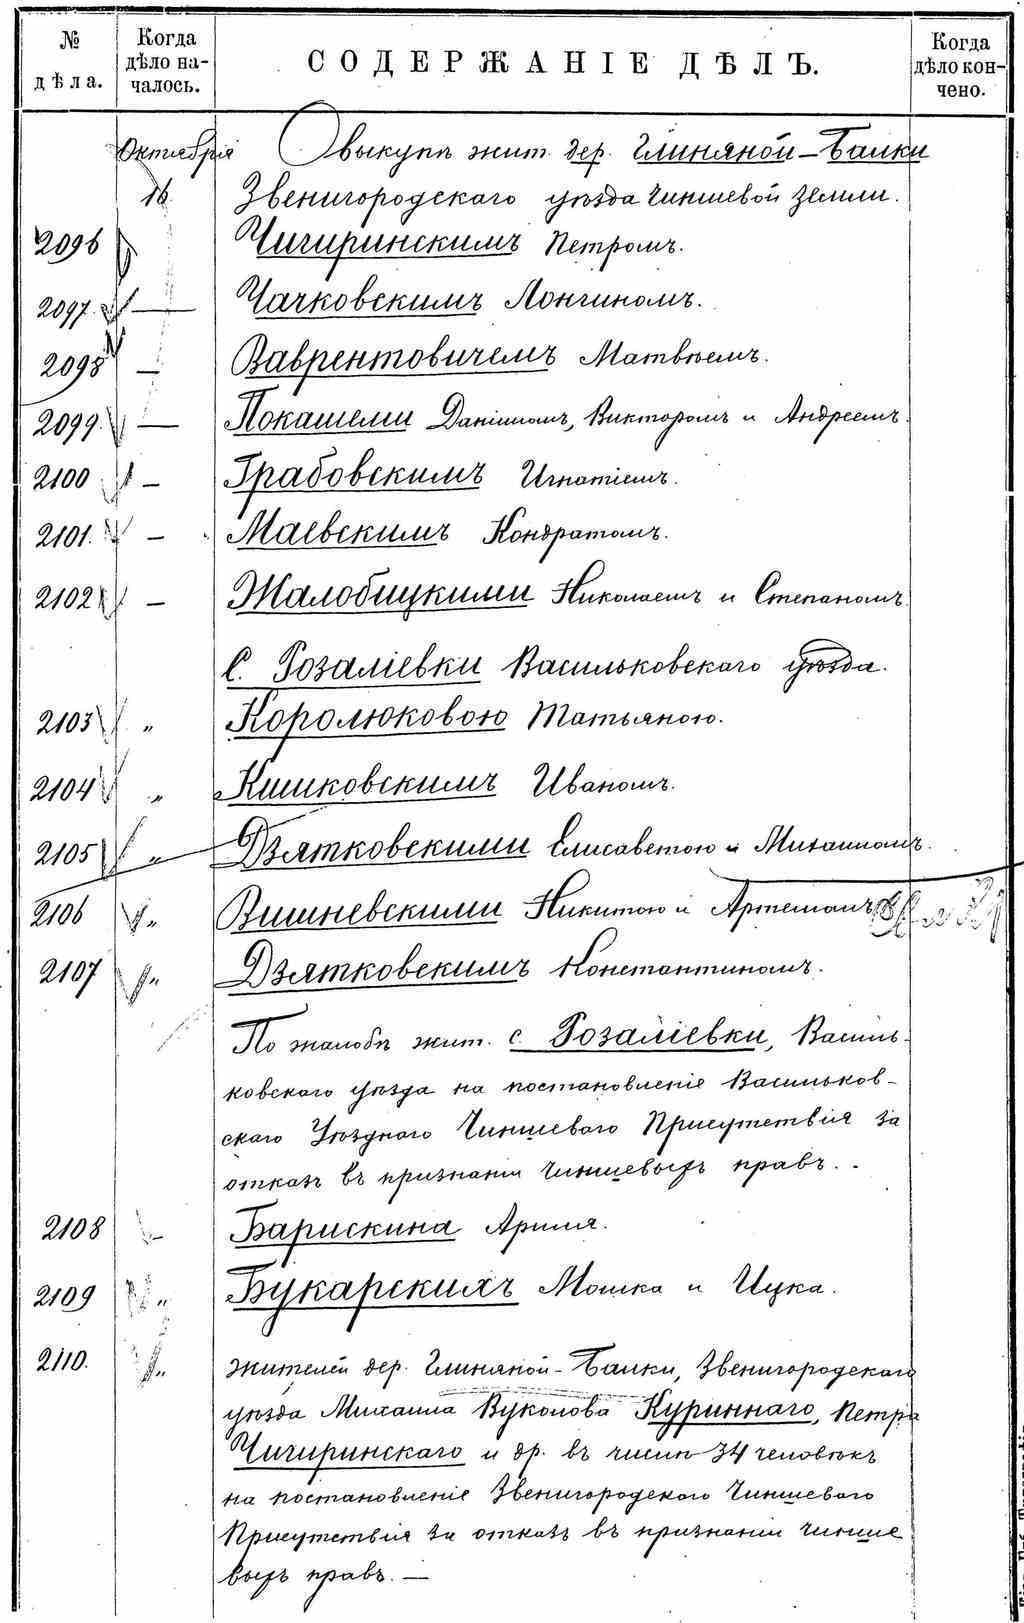 № дѣла.
Когда дѣло на-чалось.
СОДЕРЖАНІЕ ДѢЛЪ.
Когда дѣло кон-чено.
Октября О выкупѣ жит. дер. Глиняной-Балки
16. Звенигородскаго уѣзда чиншевой земли.
2096 Чигиринскимъ Петромъ.
2097. — Чачковскимъ Лонгиномъ.
2098 — Вавреnтовичемъ Матвѣемъ.
2099. — Покашеми Даніиломъ, Викторомъ и Андреемъ.
2100 — Грабовскимъ Игнатіемъ.
2101. — Маевскимъ Кондратомъ.
2102 — Жалобицкими Николаемъ и Степаномъ.
С. Розаліевки Васильковскаго уѣзда.
2103 „ Королюковою Татьяною.
2104 „ Кишковскимъ Иваномъ.
2105 „ Дзятковскими Елисаветою и Михаиломъ.
2106 „ Вишневскими Никитою и Артемомъ
2107 „ Дзятковскимъ Константиномъ.
По жалобѣ жит. с. Розаліевки, Василь-
ковскаго уѣзда на постановленіе Васильков-
скаго Уѣзднаго Чиншеваго Присутствія за
отказъ въ признаніи чиншевыхъ правъ.
2108 – Барискина Ариля.
2109 „ Букарскихъ Мошка и Ицка.
2110. „ жителей дер. Глиняной-Балки, Звенигородскаго
уѣзда Михаила Вуколова Куриннаго, Петра
Чигиринскаго и др. въ числѣ 34 человѣкъ
на постановленіе Звенигородскаго Чиншеваго
Присутствія за отказъ въ признаніи чинше
выхъ правъ. —